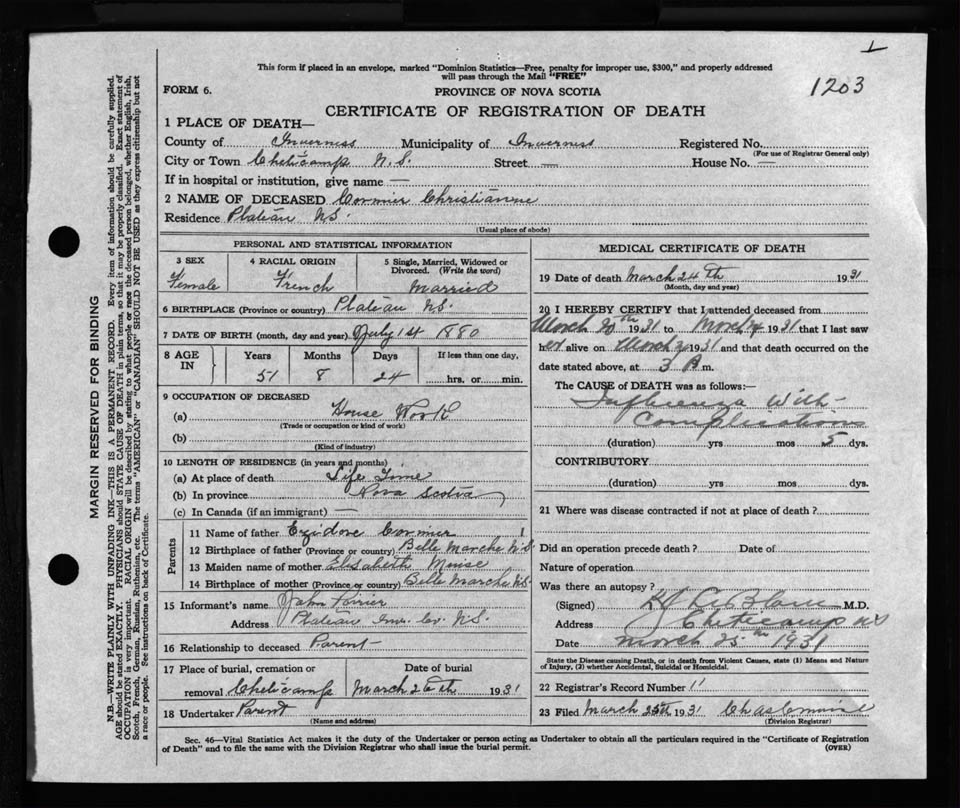 1203
This form if placed in an envelope, marked "Dominion Statistics—Free, penalty for improper use, $300," and properly addressed
will pass through the Mail "FREE"
FORM 6.
PROVINCE OF NOVA SCOTIA
CERTIFICATE OF REGISTRATION OF DEATH
MARGIN RESERVED FOR BINDING
N.B.—WRITE PLAINLY WITH UNFADING INK—THIS IS A PERMANENT RECORD. Every item of information should be carefully supplied.
AGE should be stated EXACTLY. PHYSICIANS should STATE CAUSE OF DEATH in plain terms, so that it may be properly classified. Exact statement of
OCCUPATION is very important. RACIAL ORIGIN will be described by stating to what people or race the deceased person belonged, whether English, Irish,
Scotch, French, German, Russian, Ruthenian, etc. The terms "AMERICAN" or "CANADIAN" SHOULD NOT BE USED as they express citizenship but not
a race or people. See instructions on back of Certificate.
1 PLACE OF DEATH—
County of Inverness Municipality of Inverness Registered No.
(For use of Registrar General only)
City or Town Cheticamp N.S. Street — House No. —
If in hospital or institution, give name —
2 NAME OF DECEASED Cormier Christianne
Residence Plateau NS.
(Usual place of abode)
PERSONAL AND STATISTICAL INFORMATION
3 SEX 4 RACIAL ORIGIN 5 Single, Married, Widowed or
Divorced. (Write the word)
Female French Married
6 BIRTHPLACE (Province or country) Plateau NS.
7 DATE OF BIRTH (month, day and year) July 1st 1880
8 AGE IN Years Months Days If less than one day,
51 8 24 hrs. or min.
9 OCCUPATION OF DECEASED
(a) House Work
(Trade or occupation or kind of work)
(b)
(Kind of industry)
10 LENGTH OF RESIDENCE (in years and months)
(a) At place of death Life Time
(b) In province Nova Scotia
(c) In Canada (if an immigrant) —
Parents
11 Name of father Ezidore Cormier
12 Birthplace of father (Province or country) Belle Marche N.S.
13 Maiden name of mother Elisabeth
14 Birthplace of mother (Province or country) Belle Marche NS.
15 Informant's name John Poirier
Address Plateau Inv. Co. N.S.
16 Relationship to deceased Parent
17 Place of burial, cremation or Date of burial
removal Cheticamp March 26th 1931
18 Undertaker Parent
(Name and address)
MEDICAL CERTIFICATE OF DEATH
19 Date of death March 24th 1931
(Month, day and year)
20 I HEREBY CERTIFY that I attended deceased from
March 20th 1931 to March 24 1931 that I last saw
her alive on March 1931 and that death occurred on the
date stated above, at 3 A m.
The CAUSE of DEATH was as follows:—
Influenza With
Complications
(duration) yrs mos 5 dys.
CONTRIBUTORY
(duration) yrs mos dys.
21 Where was disease contracted if not at place of death?
Did an operation precede death? Date of
Nature of operation
Was there an autopsy?
(Signed) M.D.
Address Cheticamp NS
Date March 25th 1931
State the Disease causing Death, or in death from Violent Causes, state (1) Means and Nature
of Injury, (2) whether Accidental, Suicidal or Homicidal.
22 Registrar's Record Number 11
23 Filed March 25th 1931
(Division Registrar)
Sec. 46—Vital Statistics Act makes it the duty of the Undertaker or person acting as Undertaker to obtain all the particulars required in the "Certificate of Registration
of Death" and to file the same with the Division Registrar who shall issue the burial permit.
(OVER)